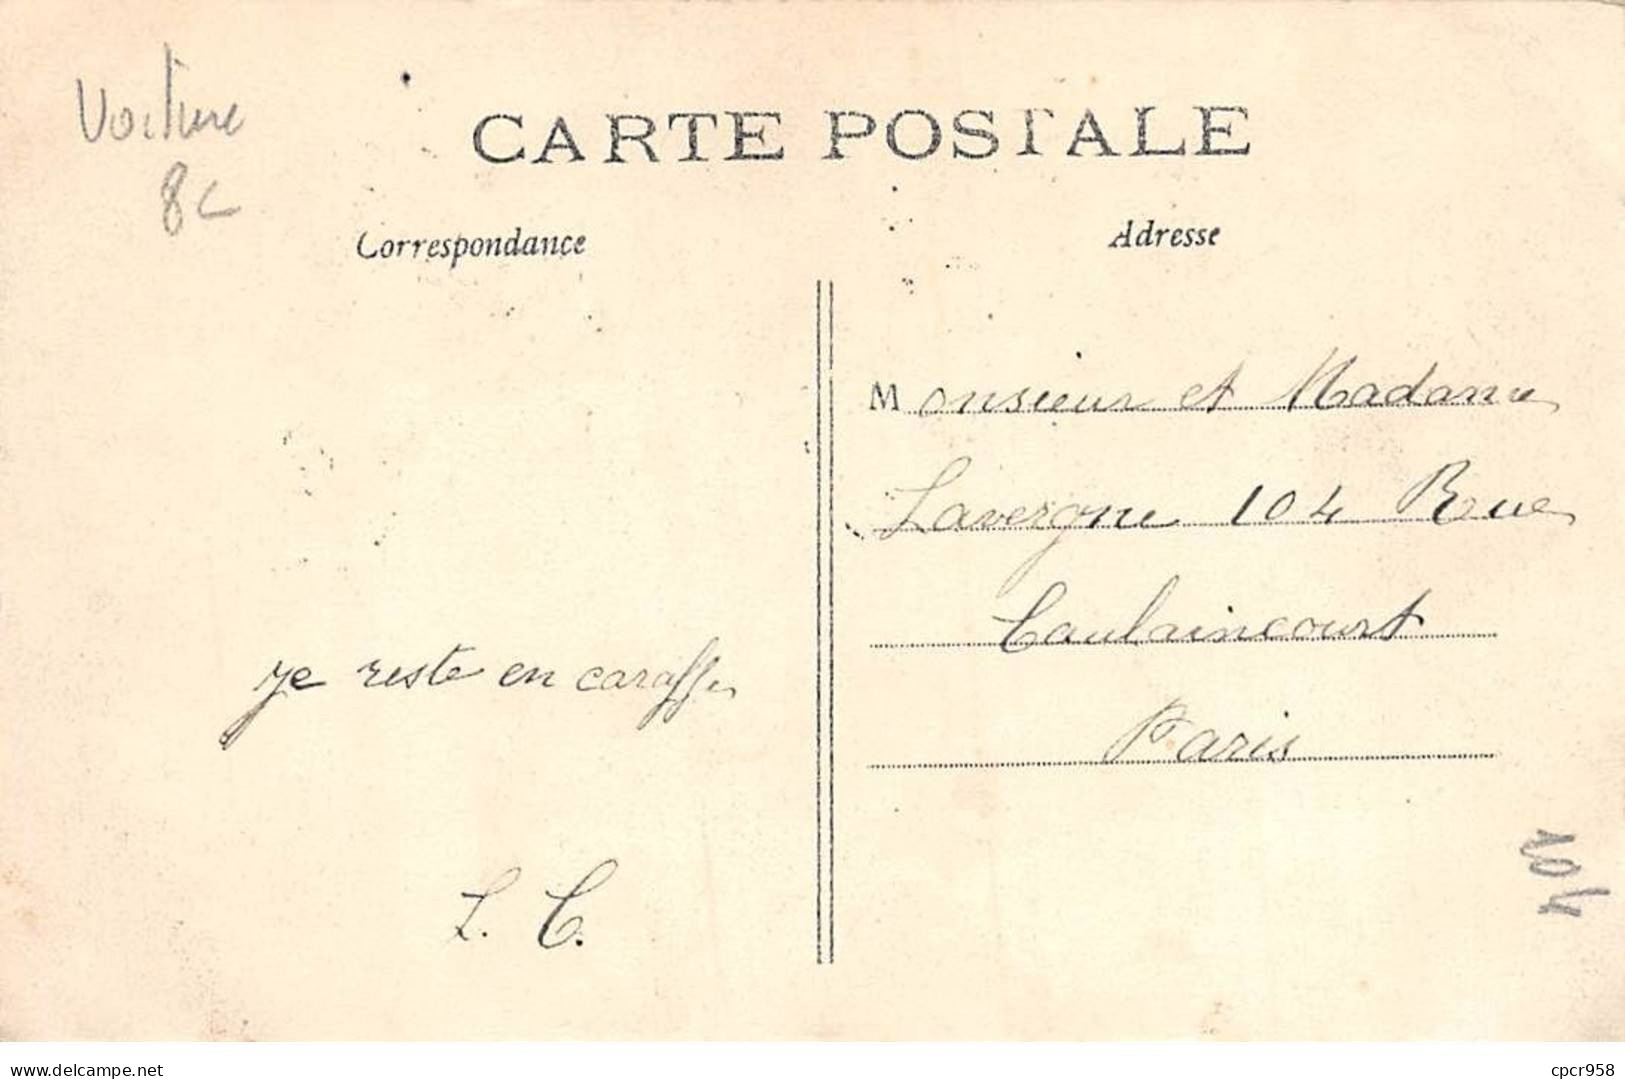 Voiture
8c
CARTE POSTALE
Correspondance
Adresse
Monsieur et Madame
Lavergne 104 Rue
Caulaincourt
Paris
je reste en caraffe
L. C.
104
www.delcampe.net
cpcr958